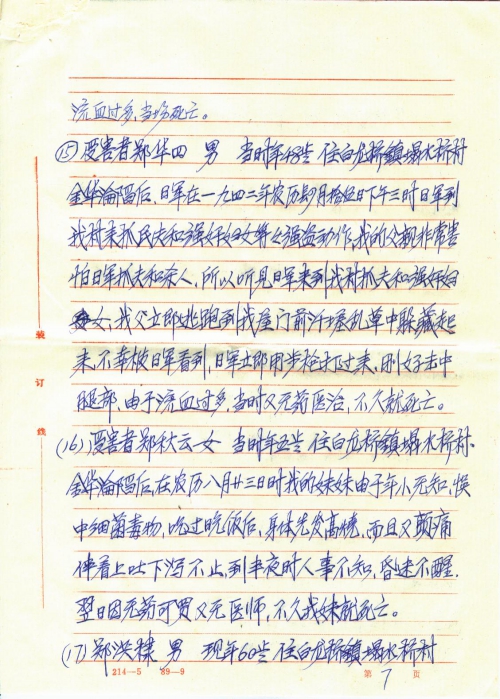 流血过多,当场死亡。
⑮受害者郑华四 男 当时年48岁 住白龙桥镇塌水桥村
金华沦陷后,日军在一九四二年农历8月拾伍日下午三时日军到
我村来抓民夫和强奸妇女等女强盗动作,我的父亲非常害
怕日军抓夫和杀人,所以听见日军来到我村抓夫和强奸妇
女,我父立即逃跑到我屋门前汗塘乱草中躲藏起
来,不幸被日军看到,日军立即用步枪打过来,刚好击中
腿部,由于流血过多,当时又无药医治,不久就死亡。
(16)受害者郑秋云 女 当时年五岁 住白龙桥镇塌水桥村.
金华沦陷后,在农历八月廿三日时我的妹妹由于年小无知,误
中细菌毒物,吃过晚饭后,身体先发高烧,而且又颠痛
伴着上吐下泻不止,到半夜时人事不知,昏迷不醒.
翌日因无药可买又无医师,不久我妹就死亡。
(17)郑洪棣 男 现年60岁 住白龙桥镇塌水桥村
装
订
线
214—5 89—9
第 7 页